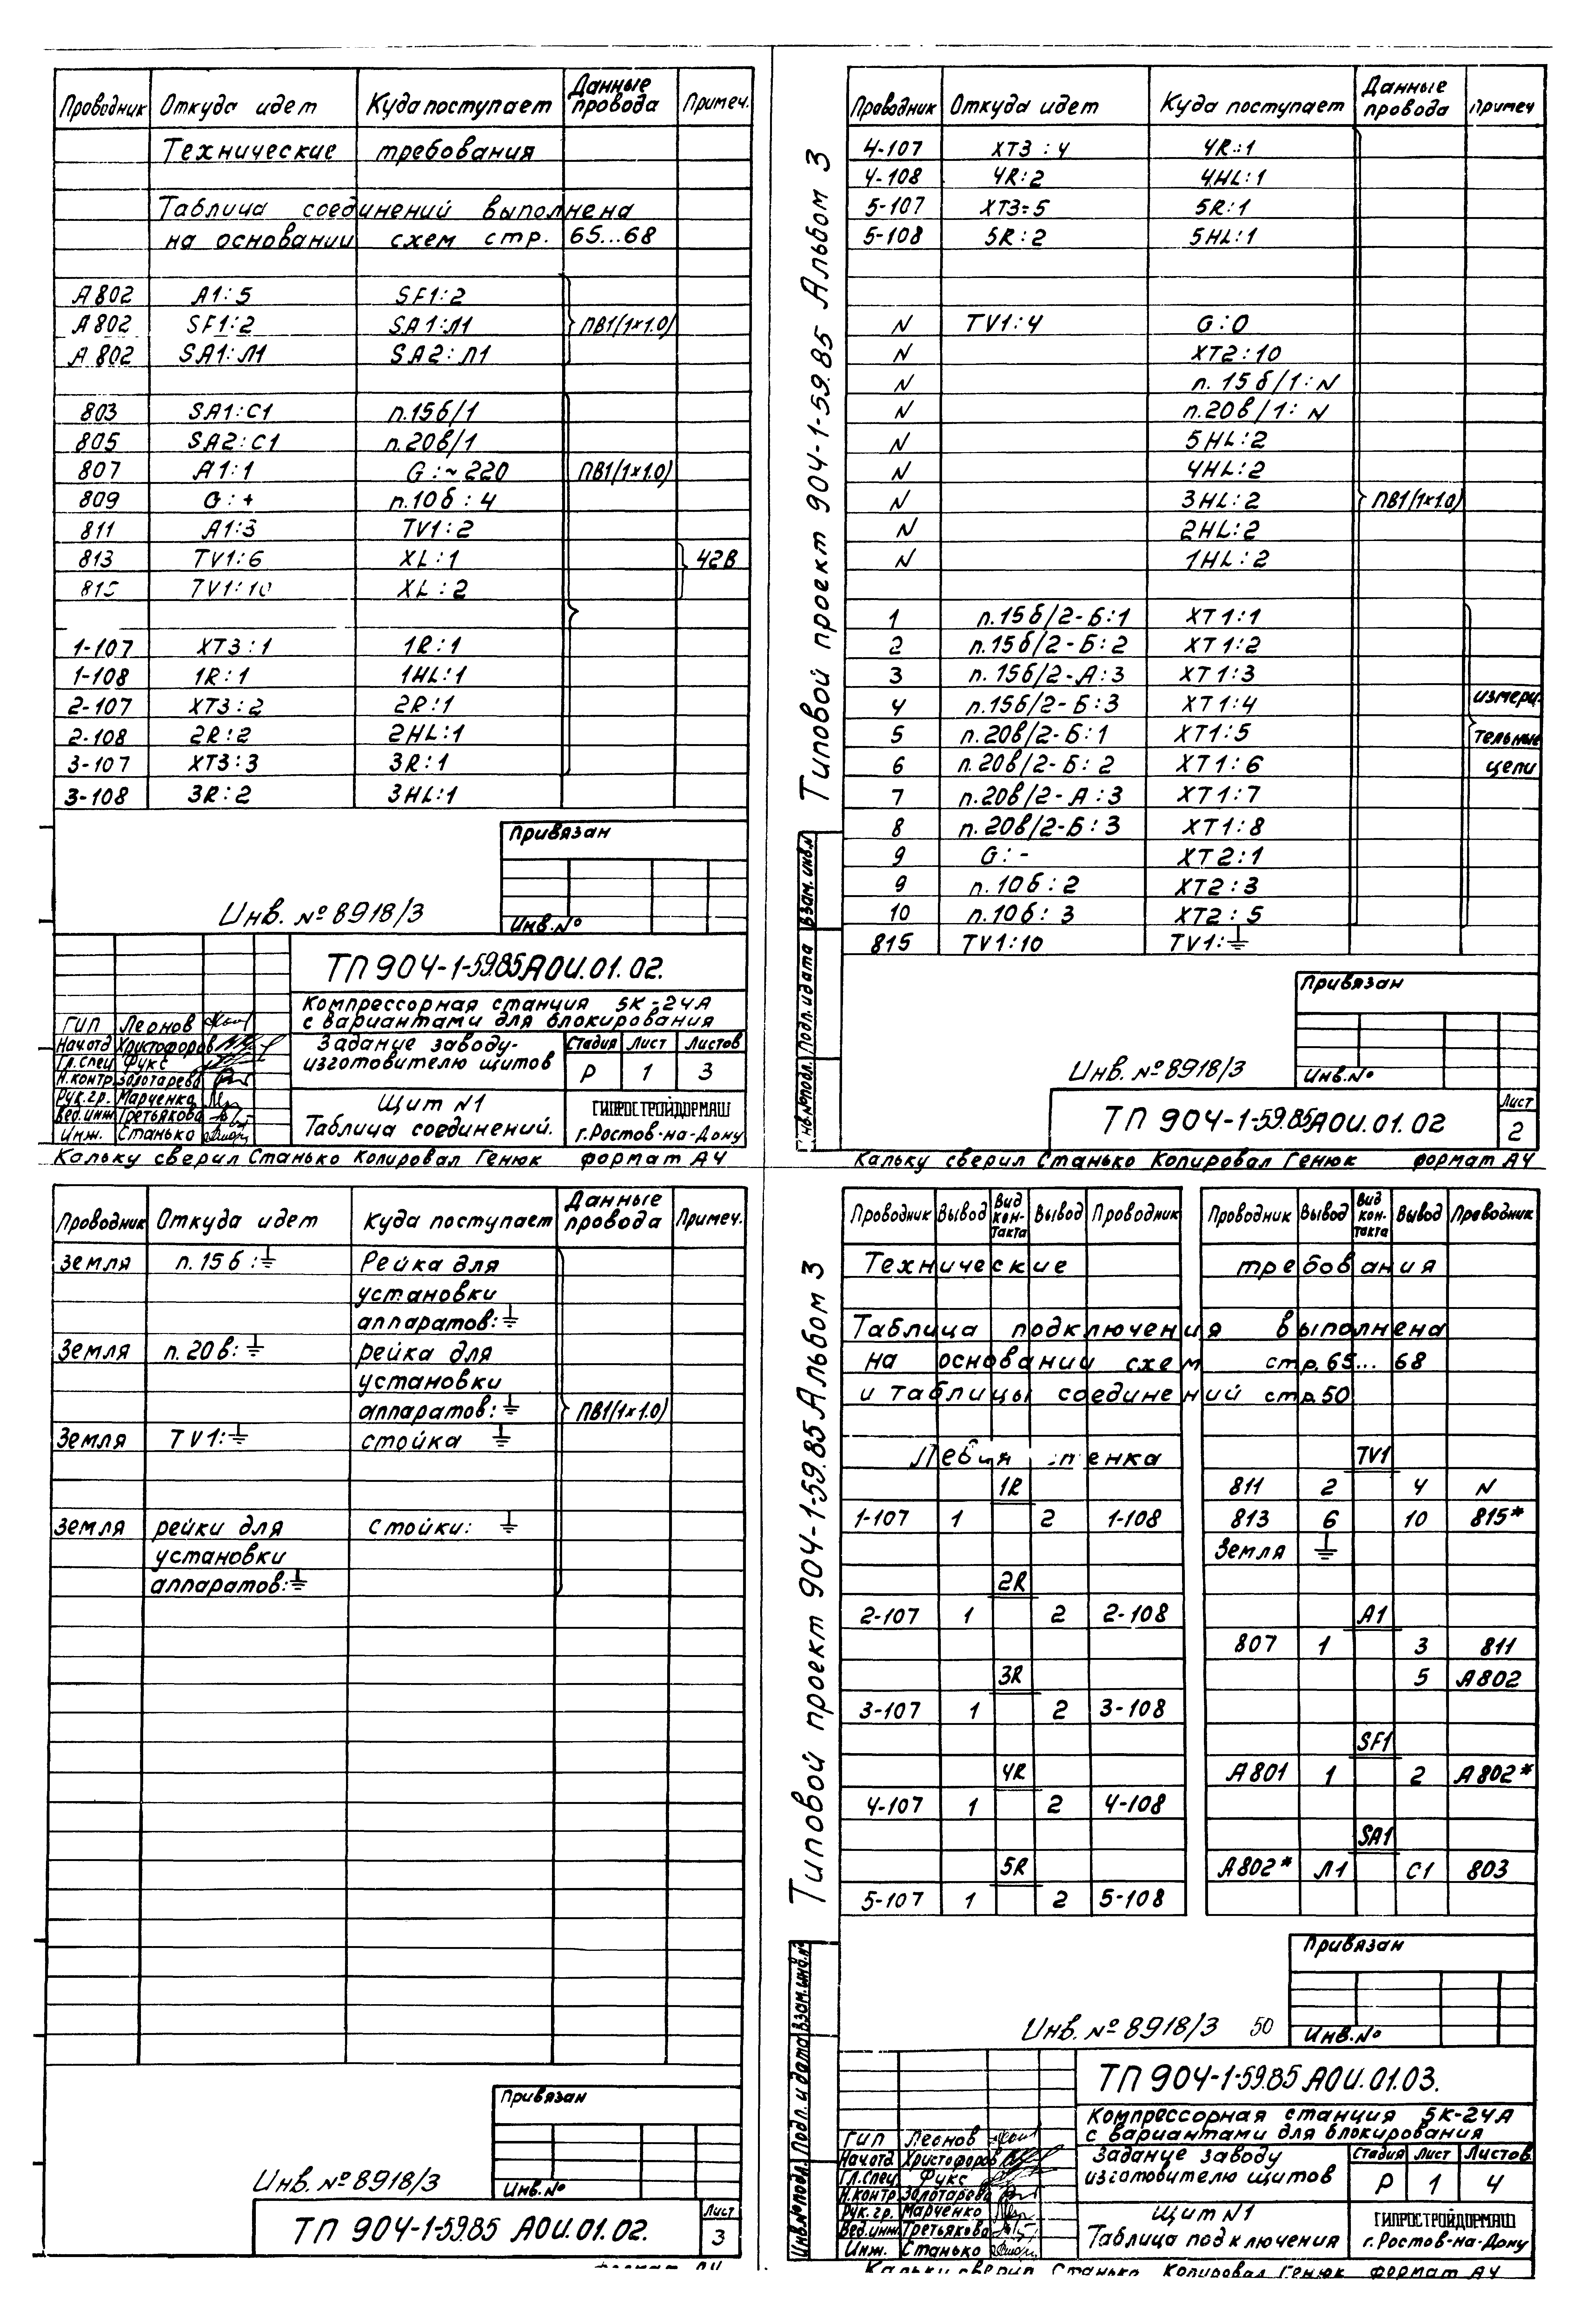 Проводник Откуда идет Куда поступает Данные провода Примеч.
Технические требования
Таблица соединений выполнена
на основании схем стр. 65...68
А802 А1:5 SF1:2
А802 SF1:2 SA1:Л1 ПВ1(1×1.0)
А802 SA1:Л1 SA2:Л1
803 SA1:С1 п.15б/1
805 SA2:С1 п.20в/1
807 А1:1 G:~220 ПВ1(1×1.0)
809 G:+ п.10б:4
811 А1:3 TV1:2
813 TV1:6 XL:1 42В
815 TV1:10 XL:2
1-107 XT3:1 1R:1
1-108 1R:1 1HL:1
2-107 XT3:2 2R:1
2-108 2R:2 2HL:1
3-107 XT3:3 3R:1
3-108 3R:2 3HL:1
Привязан
Инв. № 8918/3
Инв.№
ТП 904-1-59.85 АОИ.01.02.
Компрессорная станция 5К-24А
с вариантами для блокирования
ГИП Леонов
Нач.отд Христофоров
Гл.спец Фукс
Н.контр. Золотарева
Рук.гр. Марченко
Вед.инж Третьякова
Инж. Станько
Задание заводу-
изготовителю щитов
Стадия Лист Листов
Р 1 3
Щит №1
Таблица соединений.
ГИПРОСТРОЙДОРМАШ
г.Ростов-на-Дону
Кальку сверил Станько Копировал Генюк формат А4
Типовой проект 904-1-59.85 Альбом 3
Проводник Откуда идет Куда поступает Данные провода Примеч
4-107 XT3:4 4R:1
4-108 4R:2 4HL:1
5-107 XT3:5 5R:1
5-108 5R:2 5HL:1
N TV1:4 G:0
N XT2:10
N п.15б/1:N
N п.20в/1:N
N 5HL:2
N 4HL:2
N 3HL:2 ПВ1(1×1.0)
N 2HL:2
N 1HL:2
1 п.15б/2-Б:1 XT1:1
2 п.15б/2-Б:2 XT1:2
3 п.15б/2-А:3 XT1:3
4 п.15б/2-Б:3 XT1:4 измери-
5 п.20в/2-Б:1 XT1:5 тельные
6 п.20в/2-Б:2 XT1:6 цепи
7 п.20в/2-А:3 XT1:7
8 п.20в/2-Б:3 XT1:8
9 G:- XT2:1
9 п.10б:2 XT2:3
10 п.10б:3 XT2:5
815 TV1:10 TV1:⏚
Привязан
Инв. № 8918/3
Инв.№
ТП 904-1-59.85 АОИ.01.02
Лист
2
Инв.№ подл. Подп. и дата Взам. инв.№
Кальку сверил Станько Копировал Генюк формат А4
Проводник Откуда идет Куда поступает Данные провода Примеч.
Земля п.15б:⏚ Рейка для
установки
аппаратов:⏚
Земля п.20в:⏚ рейка для
установки
аппаратов:⏚ ПВ1(1×1.0)
Земля TV1:⏚ стойка ⏚
Земля рейки для Стойки: ⏚
установки
аппаратов:⏚
Привязан
Инв. № 8918/3
Инв.№
ТП 904-1-59.85 АОИ.01.02.
Лист
3
формат А4
Типовой проект 904-1-59.85 Альбом 3
Проводник Вывод Вид контакта Вывод Проводник
Технические требования
Таблица подключения выполнена
на основании схем стр.65...68
и таблицы соединений стр.50
Левая стенка
1R
1-107 1 2 1-108
2R
2-107 1 2 2-108
3R
3-107 1 2 3-108
4R
4-107 1 2 4-108
5R
5-107 1 2 5-108
Проводник Вывод Вид контакта Вывод Проводник
TV1
811 2 4 N
813 6 10 815*
Земля ⏚
А1
807 1 3 811
5 А802
SF1
А801 1 2 А802*
SA1
А802* Л1 С1 803
Привязан
Инв. № 8918/3 50
Инв.№
ТП 904-1-59.85 АОИ.01.03.
Компрессорная станция 5К-24А
с вариантами для блокирования
ГИП Леонов
Нач.отд Христофоров
Гл.спец Фукс
Н.контр. Золотарева
Рук.гр. Марченко
Вед.инж Третьякова
Инж. Станько
Задание заводу
изготовителю щитов
Стадия Лист Листов
Р 1 4
Щит №1
Таблица подключения
ГИПРОСТРОЙДОРМАШ
г.Ростов-на-Дону
Инв.№ подл. Подп. и дата Взам.инв.№
Кальку сверил Станько Копировал Генюк формат А4